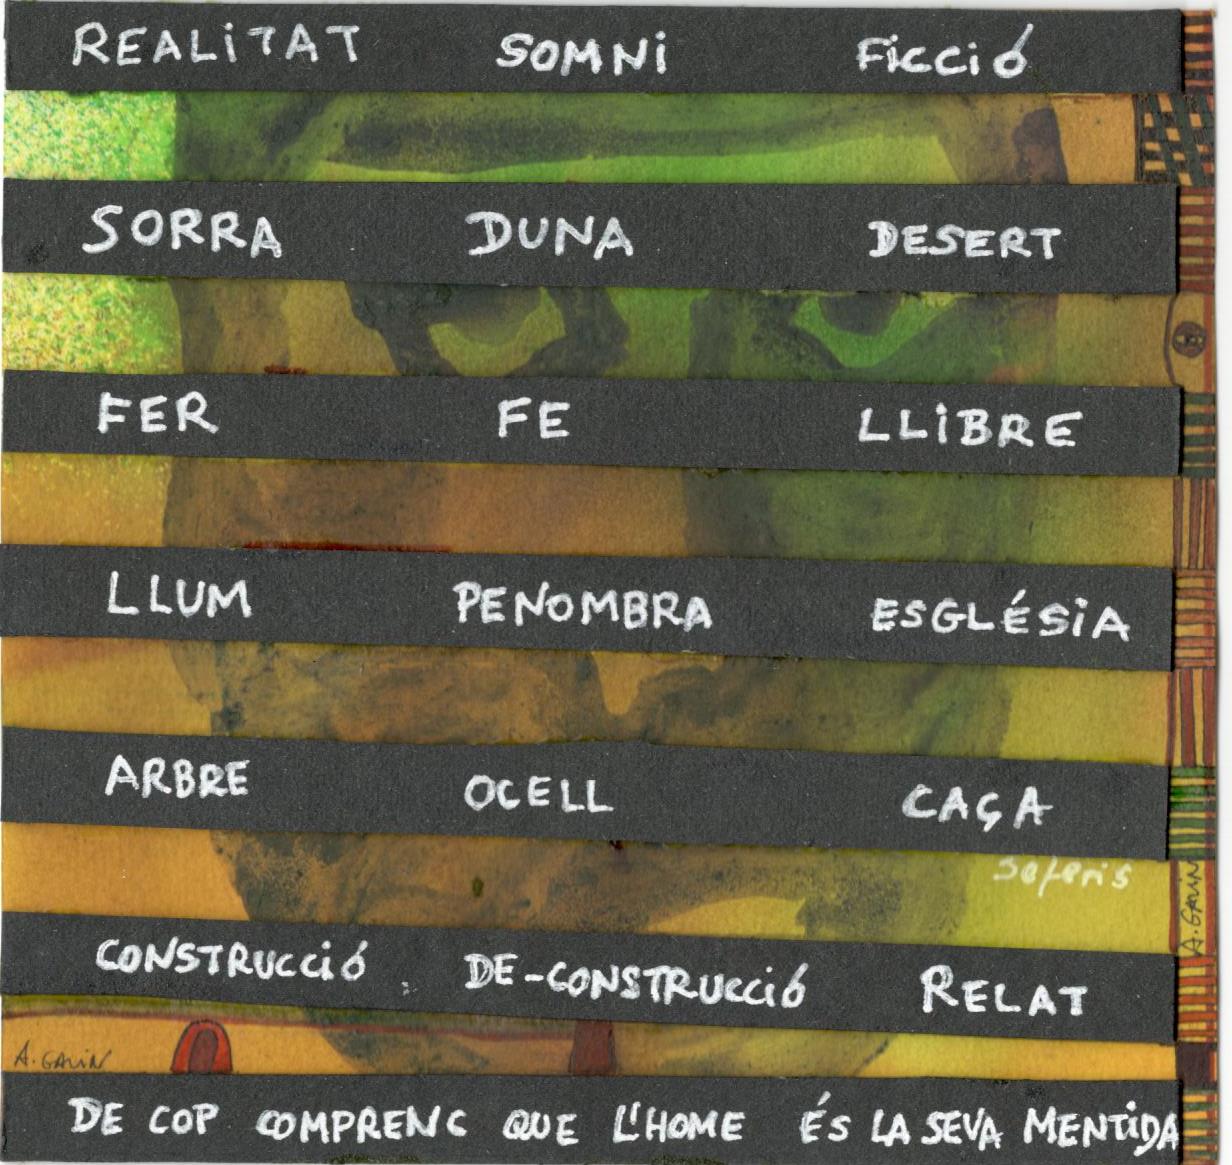 REALITAT SOMNI FICCIÓ
SORRA DUNA DESERT
FER FE LLIBRE
LLUM PENOMBRA ESGLÉSIA
ARBRE OCELL CAÇA
Seferis
A. GAVIN
CONSTRUCCIÓ DE-CONSTRUCCIÓ RELAT
A. GAVIN
DE COP COMPRENC QUE L'HOME ÉS LA SEVA MENTIDA